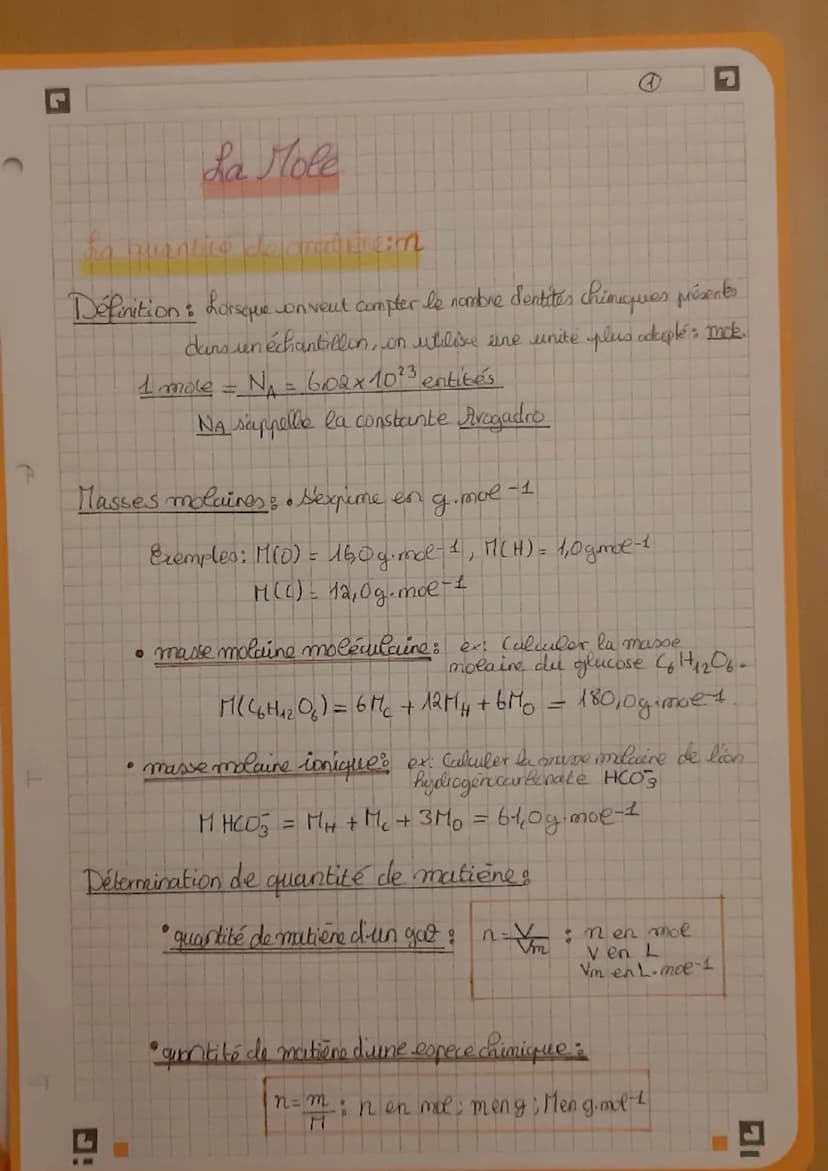 1
La Mole
La quantité de matière : n
Définition : Lorsque on veut compter le nombre d'entités chimiques présents
dans un échantillon, on utilise une unité plus adapté : mol.
1 mole = NA = 6,02 × 10²³ entités
NA s'appelle la constante Avogadro
Masses molaires : • S'exprime en g.mol⁻¹
Exemples : M(O) = 16,0 g.mol⁻¹, M(H) = 1,0 g mol⁻¹
M(C) = 12,0 g.mol⁻¹
• masse molaire moléculaire : ex : Calculer la masse
molaire du glucose C₆H₁₂O₆.
M(C₆H₁₂O₆) = 6Mc + 12MH + 6MO = 180,0 g.mol⁻¹.
• masse molaire ionique : ex : Calculer la masse molaire de l'ion
hydrogénocarbonate HCO₃⁻
M HCO₃⁻ = MH + Mc + 3MO = 61,0 g.mol⁻¹
Détermination de quantité de matière :
• quantité de matière d'un gaz : n = V/Vm : n en mol
V en L
Vm en L.mol⁻¹
• quantité de matière d'une espece chimique :
n = m/M : n en mol ; m en g ; M en g.mol⁻¹